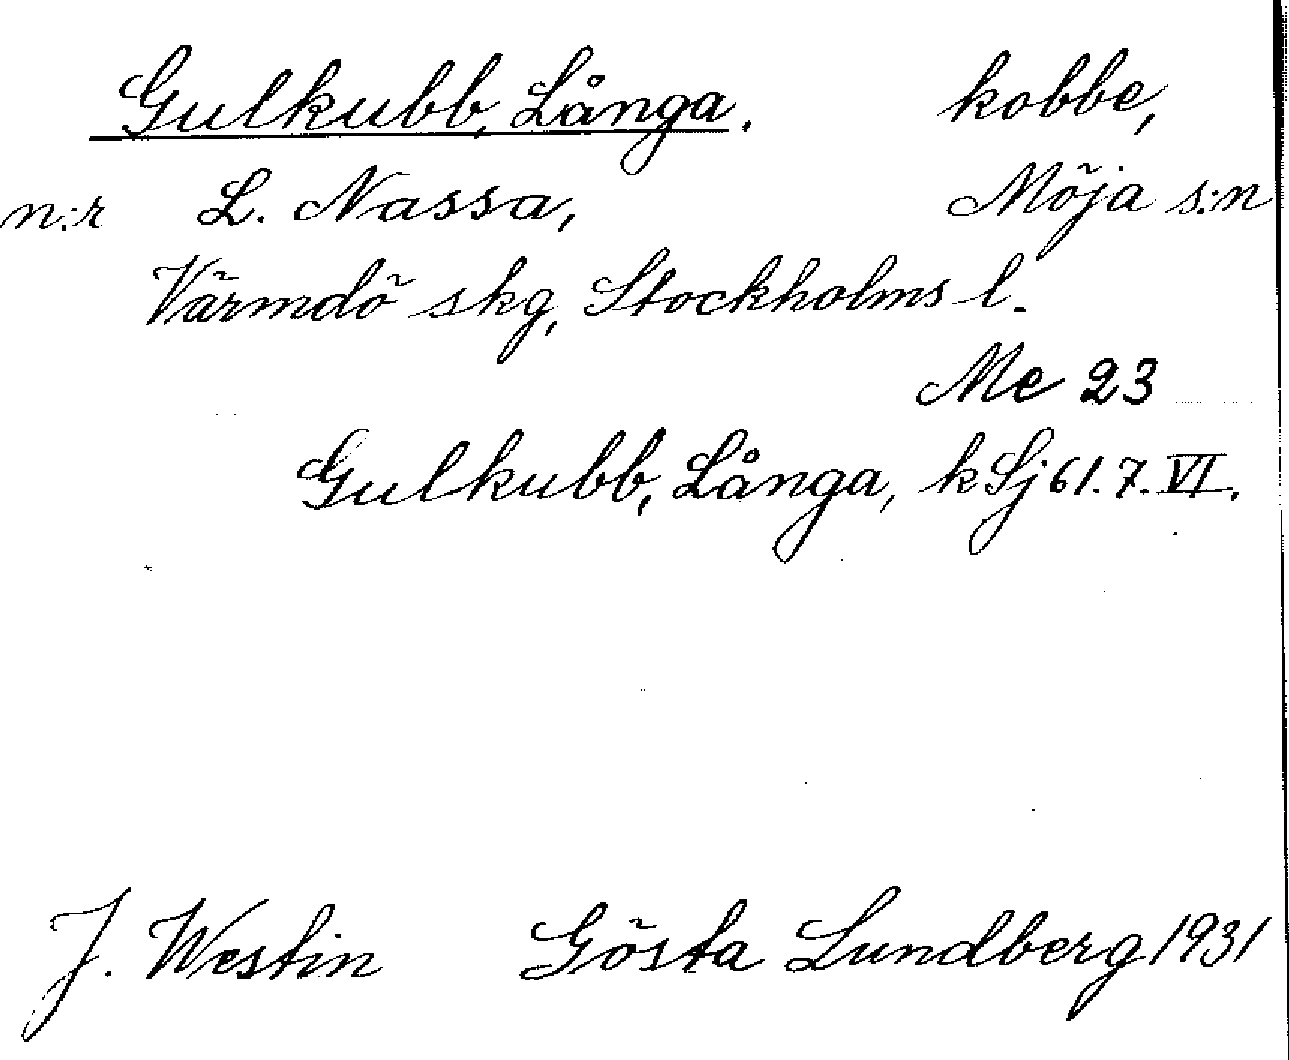 Gulkubb, Långa. kobbe,
n:r L. Nassa, Möja s:n
Värmdö skg, Stockholms l.
Me 23
Gulkubb, Långa, k Sj 61. 7. VI.
J. Westin Gösta Lundberg 1931